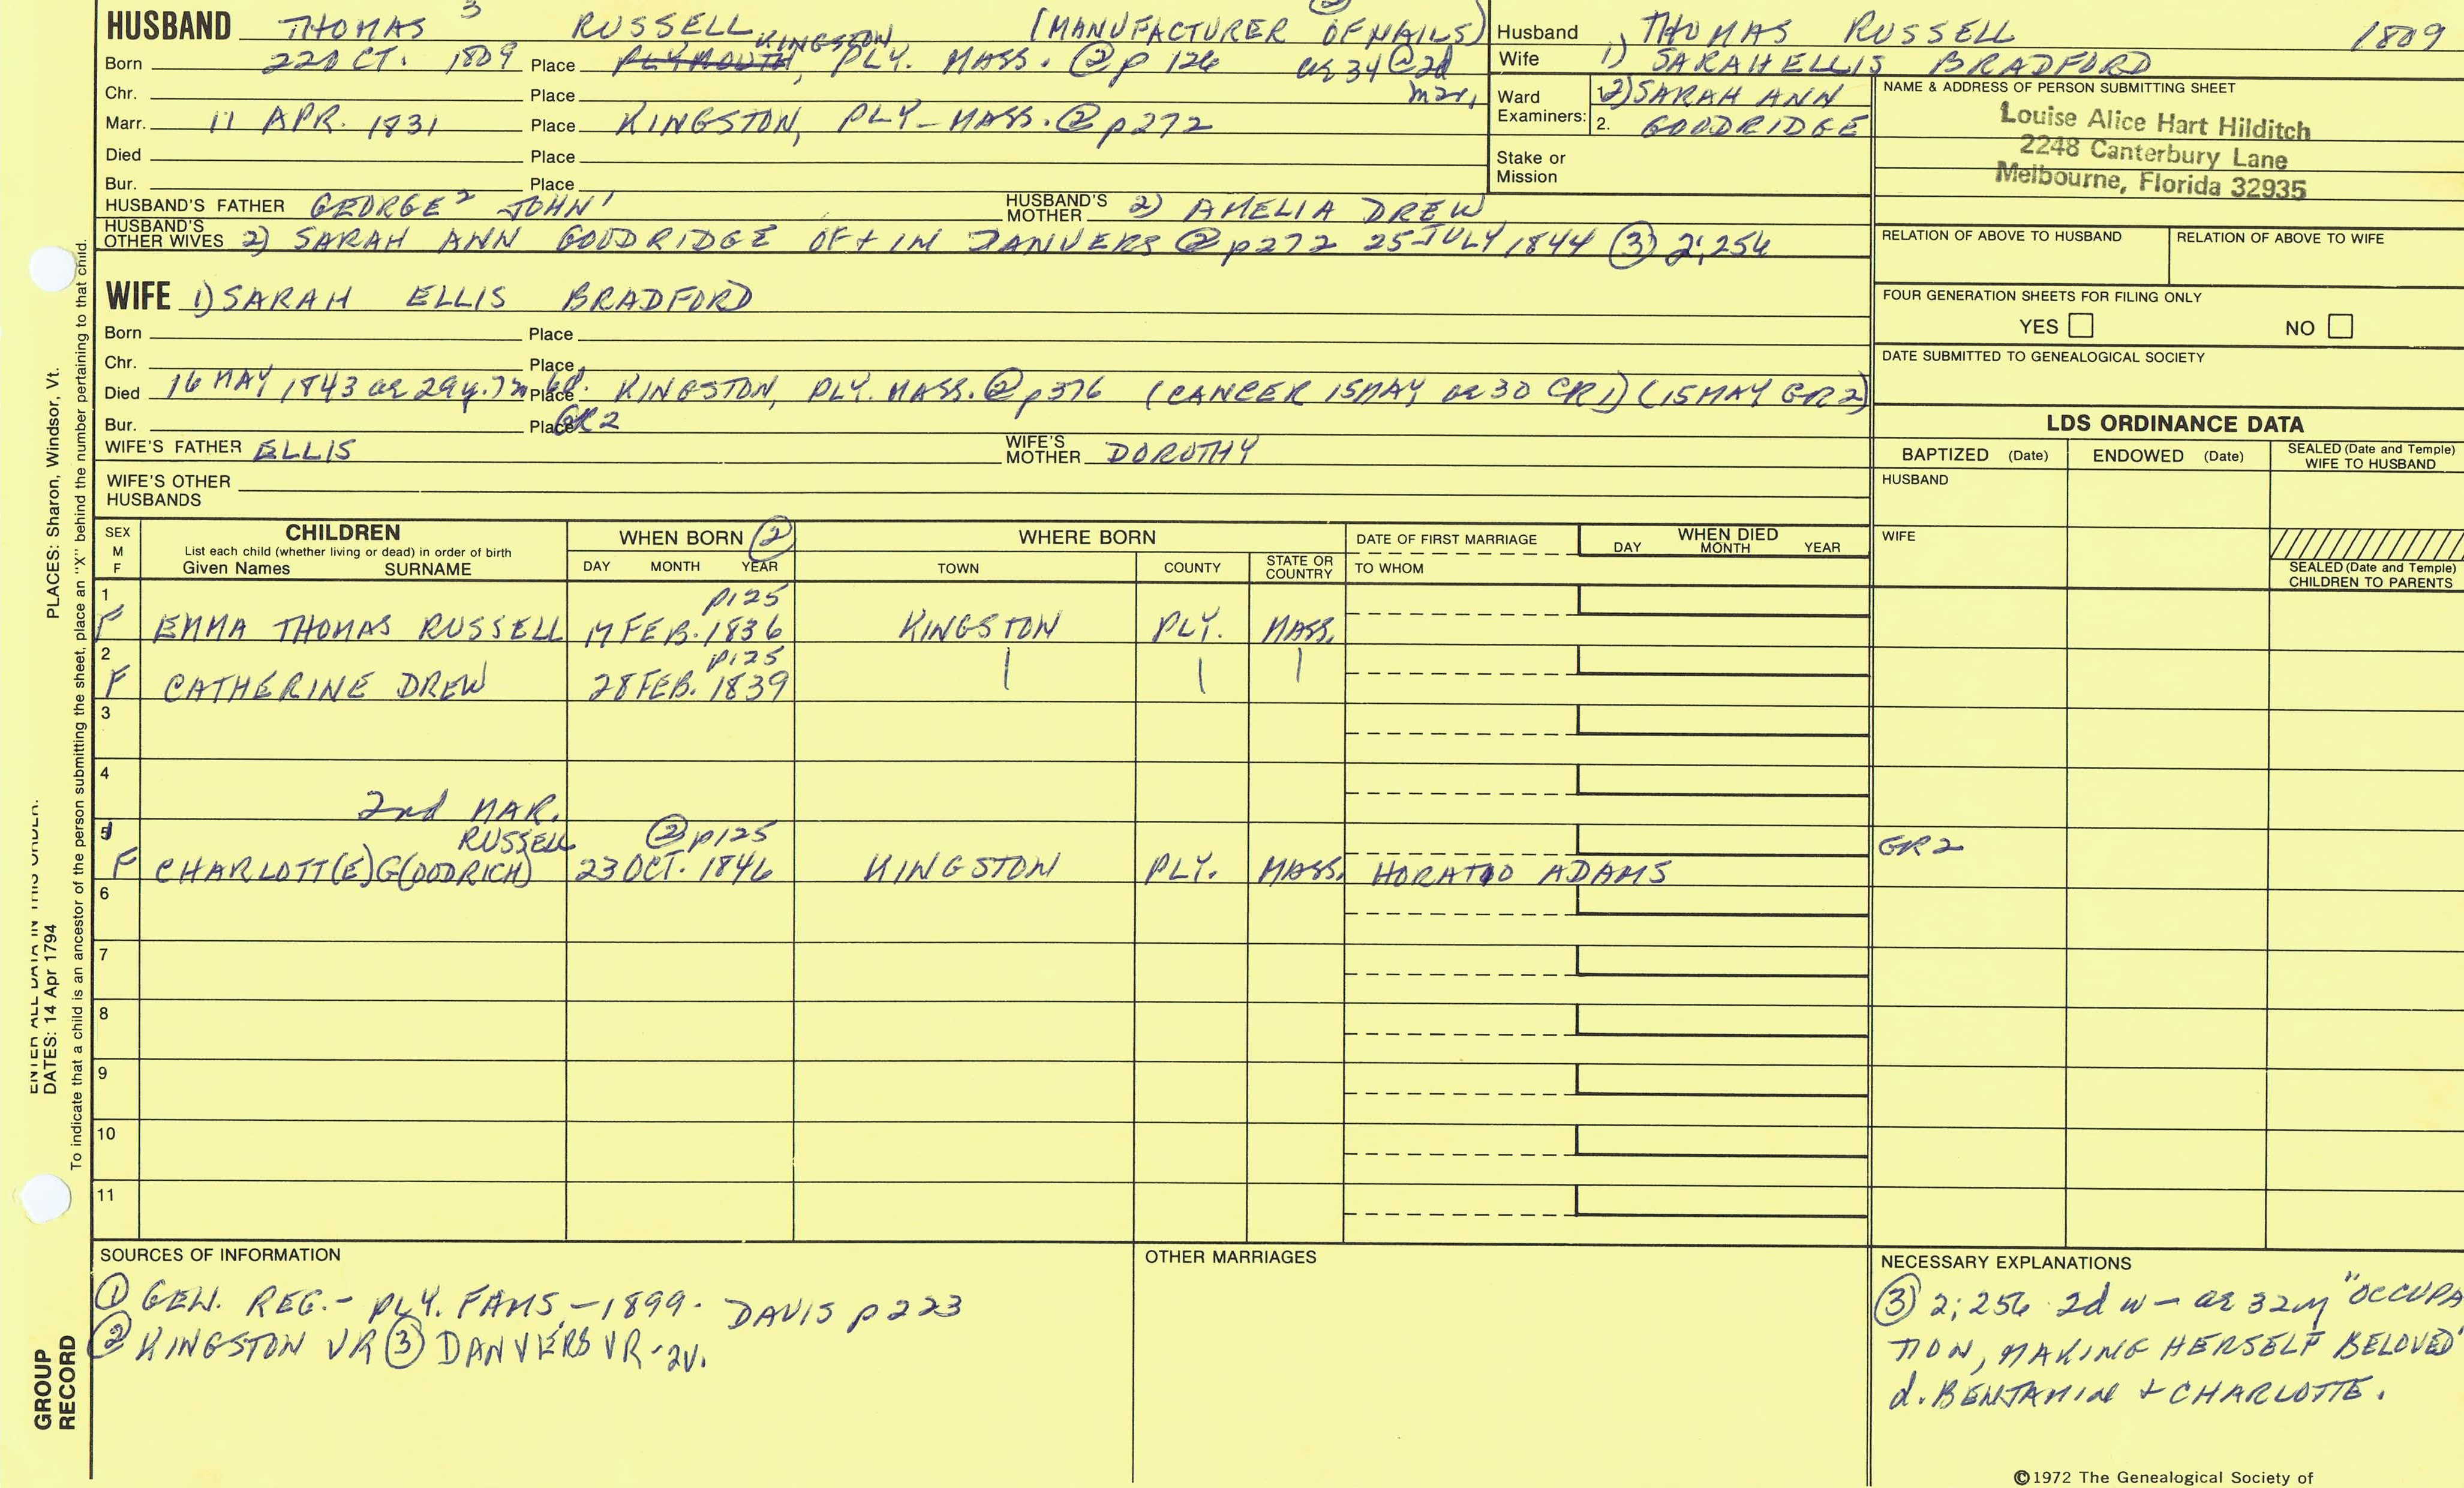 HUSBAND THOMAS 3 RUSSELL (MANUFACTURER OF NAILS) ②
Born 22 OCT. 1809 Place PLYMOUTH, KINGSTON PLY. MASS. ② p 126 ae 34 @ 2d mar,
Chr. Place
Marr. 17 APR. 1831 Place KINGSTON, PLY-MASS. ② p272
Died Place
Bur. Place
HUSBAND'S FATHER GEORGE² JOHN¹ HUSBAND'S MOTHER 2) AMELIA DREW
HUSBAND'S OTHER WIVES 2) SARAH ANN GOODRIDGE OF + IN DANVERS ② p272 25 JULY 1844 ③ 2;256
WIFE 1) SARAH ELLIS BRADFORD
Born Place
Chr. Place
Died 16 MAY 1843 ae 29y. 7m 6d. Place KINGSTON, PLY. MASS. ② p376 (CANCER 15 MAY ae 30 CR1) (15 MAY GR2)
Bur. Place GR2
WIFE'S FATHER ELLIS WIFE'S MOTHER DOROTHY
WIFE'S OTHER HUSBANDS
Husband THOMAS RUSSELL 1809
Wife 1) SARAH ELLIS BRADFORD
Ward Examiners: 1. 2) SARAH ANN
2. GOODRIDGE
Stake or Mission
NAME & ADDRESS OF PERSON SUBMITTING SHEET
Louise Alice Hart Hilditch
2248 Canterbury Lane
Melbourne, Florida 32935
RELATION OF ABOVE TO HUSBAND RELATION OF ABOVE TO WIFE
FOUR GENERATION SHEETS FOR FILING ONLY
YES NO
DATE SUBMITTED TO GENEALOGICAL SOCIETY
LDS ORDINANCE DATA
BAPTIZED (Date) ENDOWED (Date) SEALED (Date and Temple) WIFE TO HUSBAND
HUSBAND
WIFE
SEALED (Date and Temple) CHILDREN TO PARENTS
SEX M F CHILDREN WHEN BORN ② WHERE BORN DATE OF FIRST MARRIAGE WHEN DIED
List each child (whether living or dead) in order of birth
Given Names SURNAME DAY MONTH YEAR TOWN COUNTY STATE OR COUNTRY TO WHOM DAY MONTH YEAR
1 p125
F EMMA THOMAS RUSSELL 17 FEB. 1836 KINGSTON PLY. MASS.
2 p125
F CATHERINE DREW 28 FEB. 1839 | | |
3
4
2nd MAR.
5 1 RUSSELL ② p125
F CHARLOTT(E) G(OODRICH) 23 OCT. 1846 KINGSTON PLY. MASS. HORATIO ADAMS GR2
6
7
8
9
10
11
SOURCES OF INFORMATION
① GEN. REG.- PLY. FAMS.-1899- DAVIS p223
② KINGSTON VR ③ DANVERS VR-2V.
OTHER MARRIAGES
NECESSARY EXPLANATIONS
③ 2;256 2d w- ae 32y "OCCUPA
TION, MAKING HERSELF BELOVED"
d. BENJAMIN + CHARLOTTE.
©1972 The Genealogical Society of
PLACES: Sharon, Windsor, Vt.
ENTER ALL DATA IN THIS ORDER:
DATES: 14 Apr 1794
To indicate that a child is an ancestor of the person submitting the sheet, place an "X" behind the number pertaining to that child.
GROUP RECORD